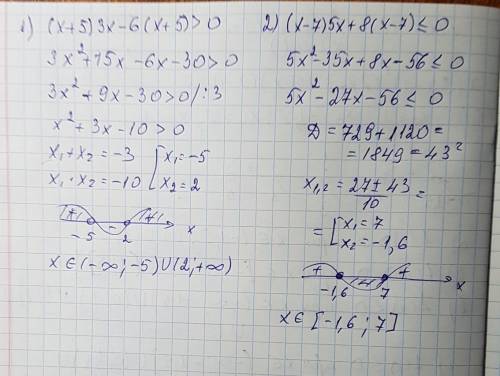 1) (x+5)3x-6(x+5)>0
3x²+15x-6x-30>0
3x²+9x-30>0 /:3
x²+3x-10>0
x₁+x₂=-3 [x₁=-5
x₁·x₂=-10 [x₂=2
+ - +
-5 2 x
x∈(-∞;-5)∪(2;+∞)
2) (x-7)5x+8(x-7)≤0
5x²-35x+8x-56≤0
5x²-27x-56≤0
D=729+1120=
=1849=43²
x₁,₂=(27±43)/10=
=[x₁=7
[x₂=-1,6
+ - +
-1,6 7 x
x∈[-1,6;7]